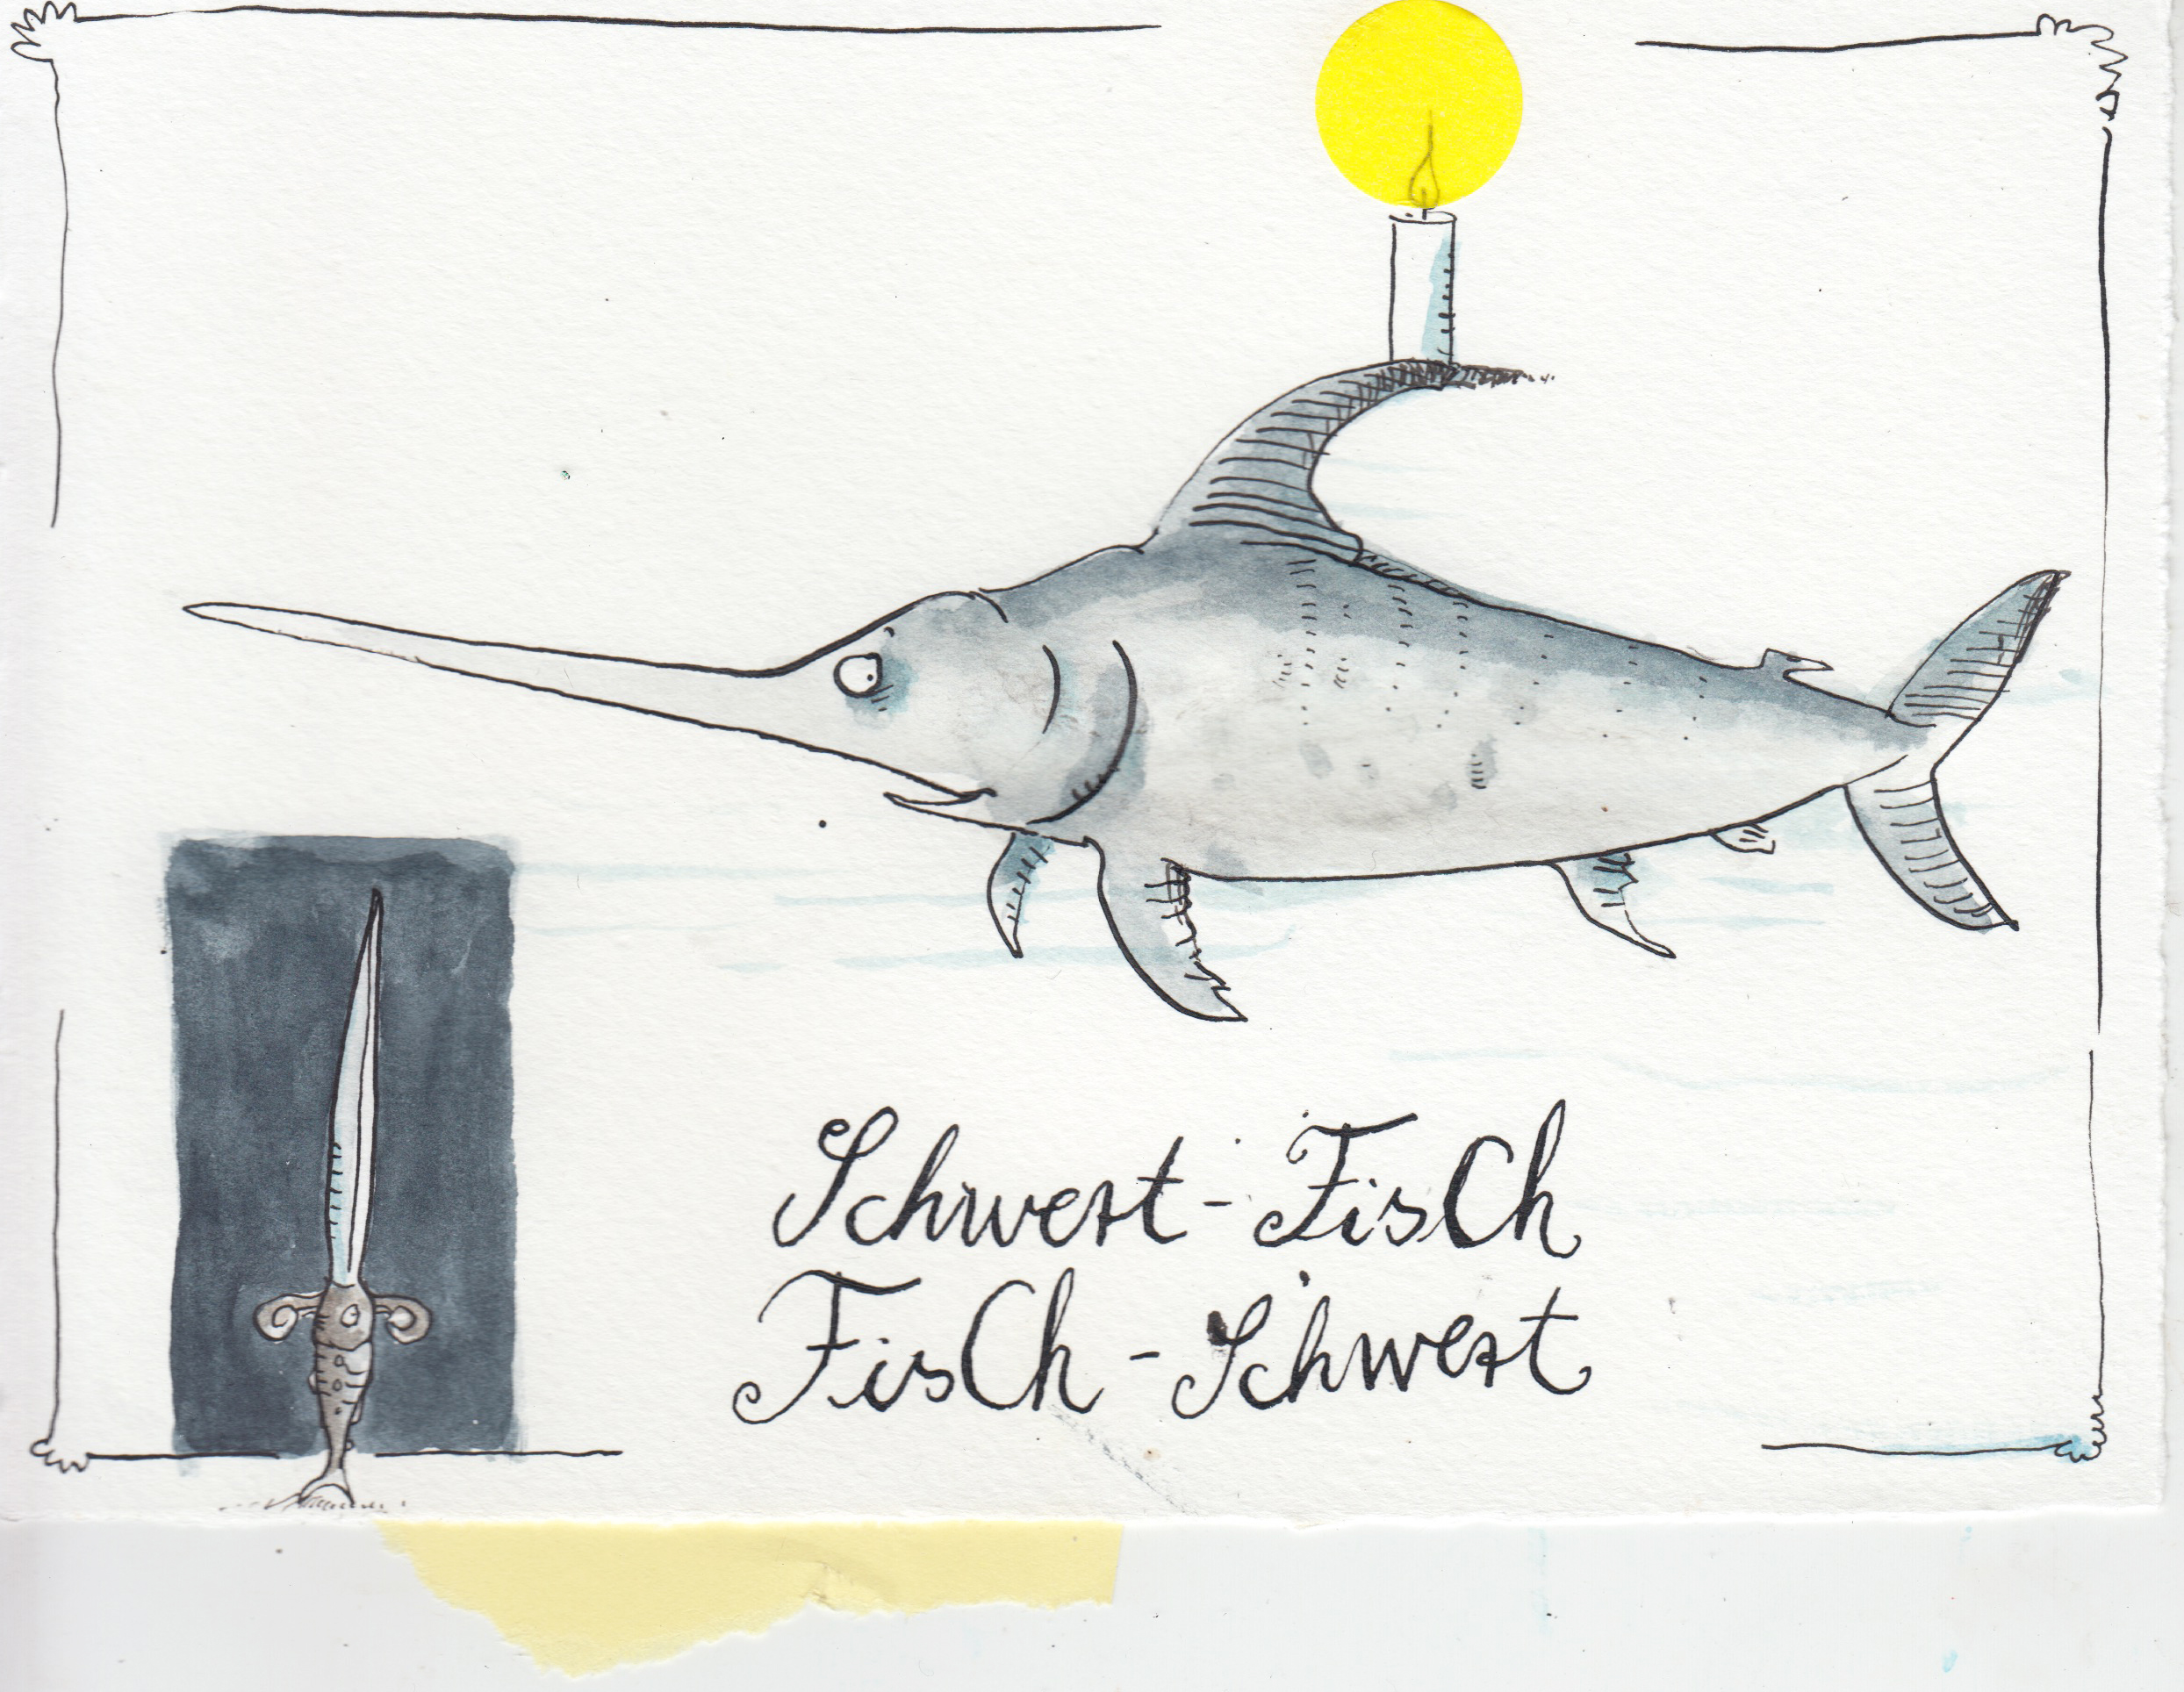 Schwert-FisCh
FisCh-Schwert